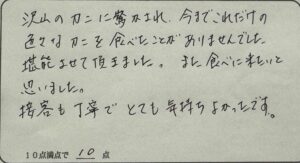 沢山のカニに驚かされ、今までこれだけの
色々なカニを食べたことがありませんでした。
堪能させて頂きました。また食べに来たいと
思いました。
接客も丁寧でとても気持ちよかったです。
10点満点で 10 点